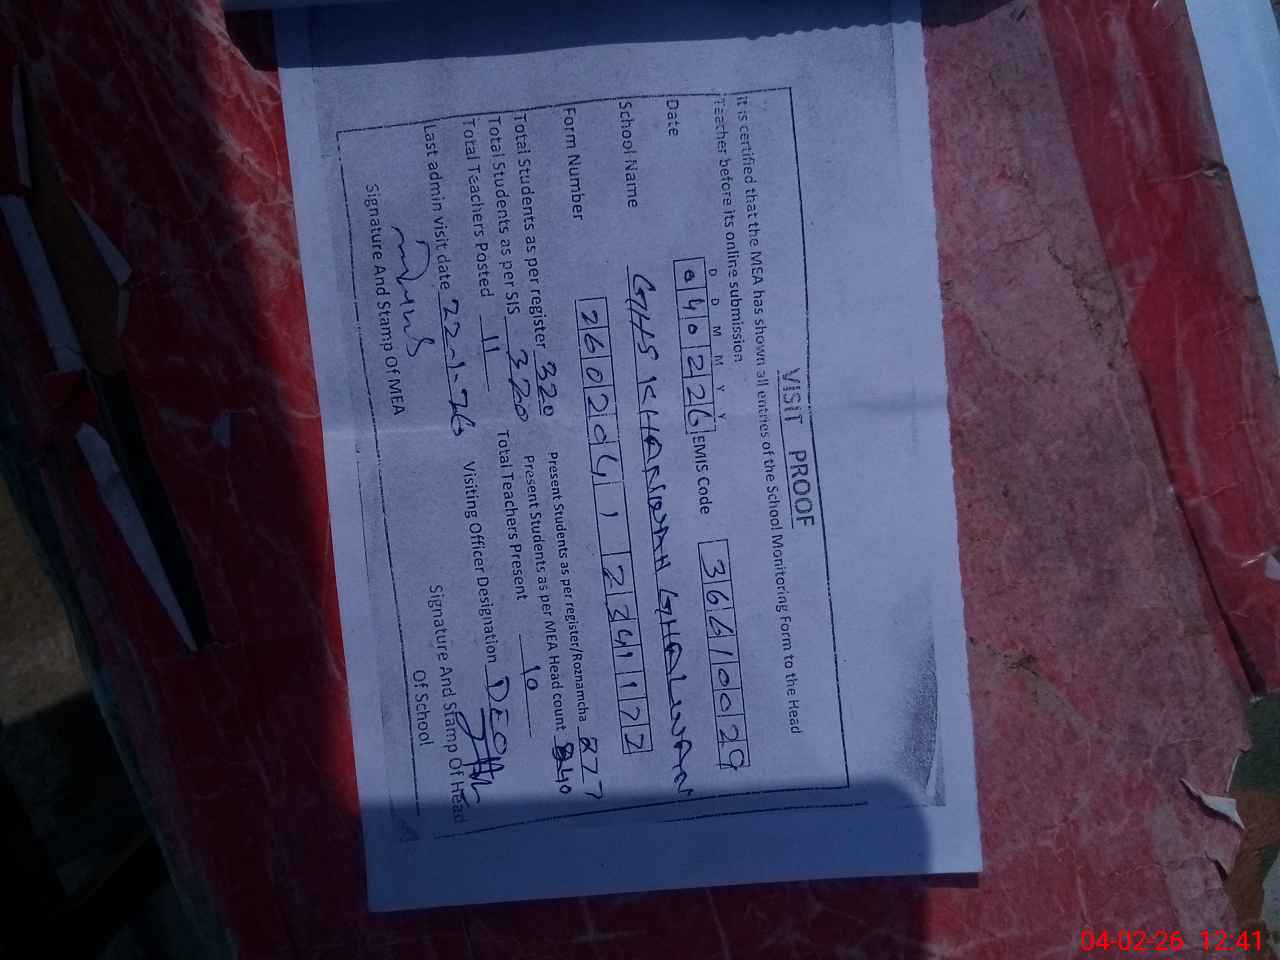 VISIT PROOF
It is certified that the MEA has shown all entries of the School Monitoring Form to the Head
Teacher before its online submission
D D M M Y Y
Date 040226 EMIS Code 36610029
School Name GHS KHANWAH GHALWAN
Form Number 26020411234177
Total Students as per register 320 Present Students as per register/Roznamcha 277
Total Students as per SIS 320 Present Students as per MEA Head count 240
Total Teachers Posted 11 Total Teachers Present 10
Last admin visit date 22-1-26 Visiting Officer Designation DEO
Signature And Stamp Of MEA
Signature And Stamp Of Head
Of School
04-02-26 12:41